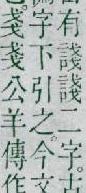 有諓諓二字古
字下引之今文
戔戔公羊傳作